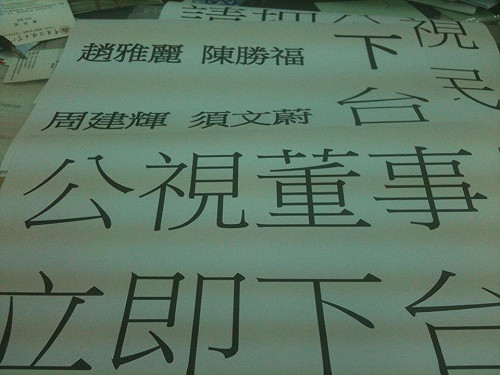 趙雅麗 陳勝福
下
視
台
民
周建輝 須文蔚
公視董事
立即下台